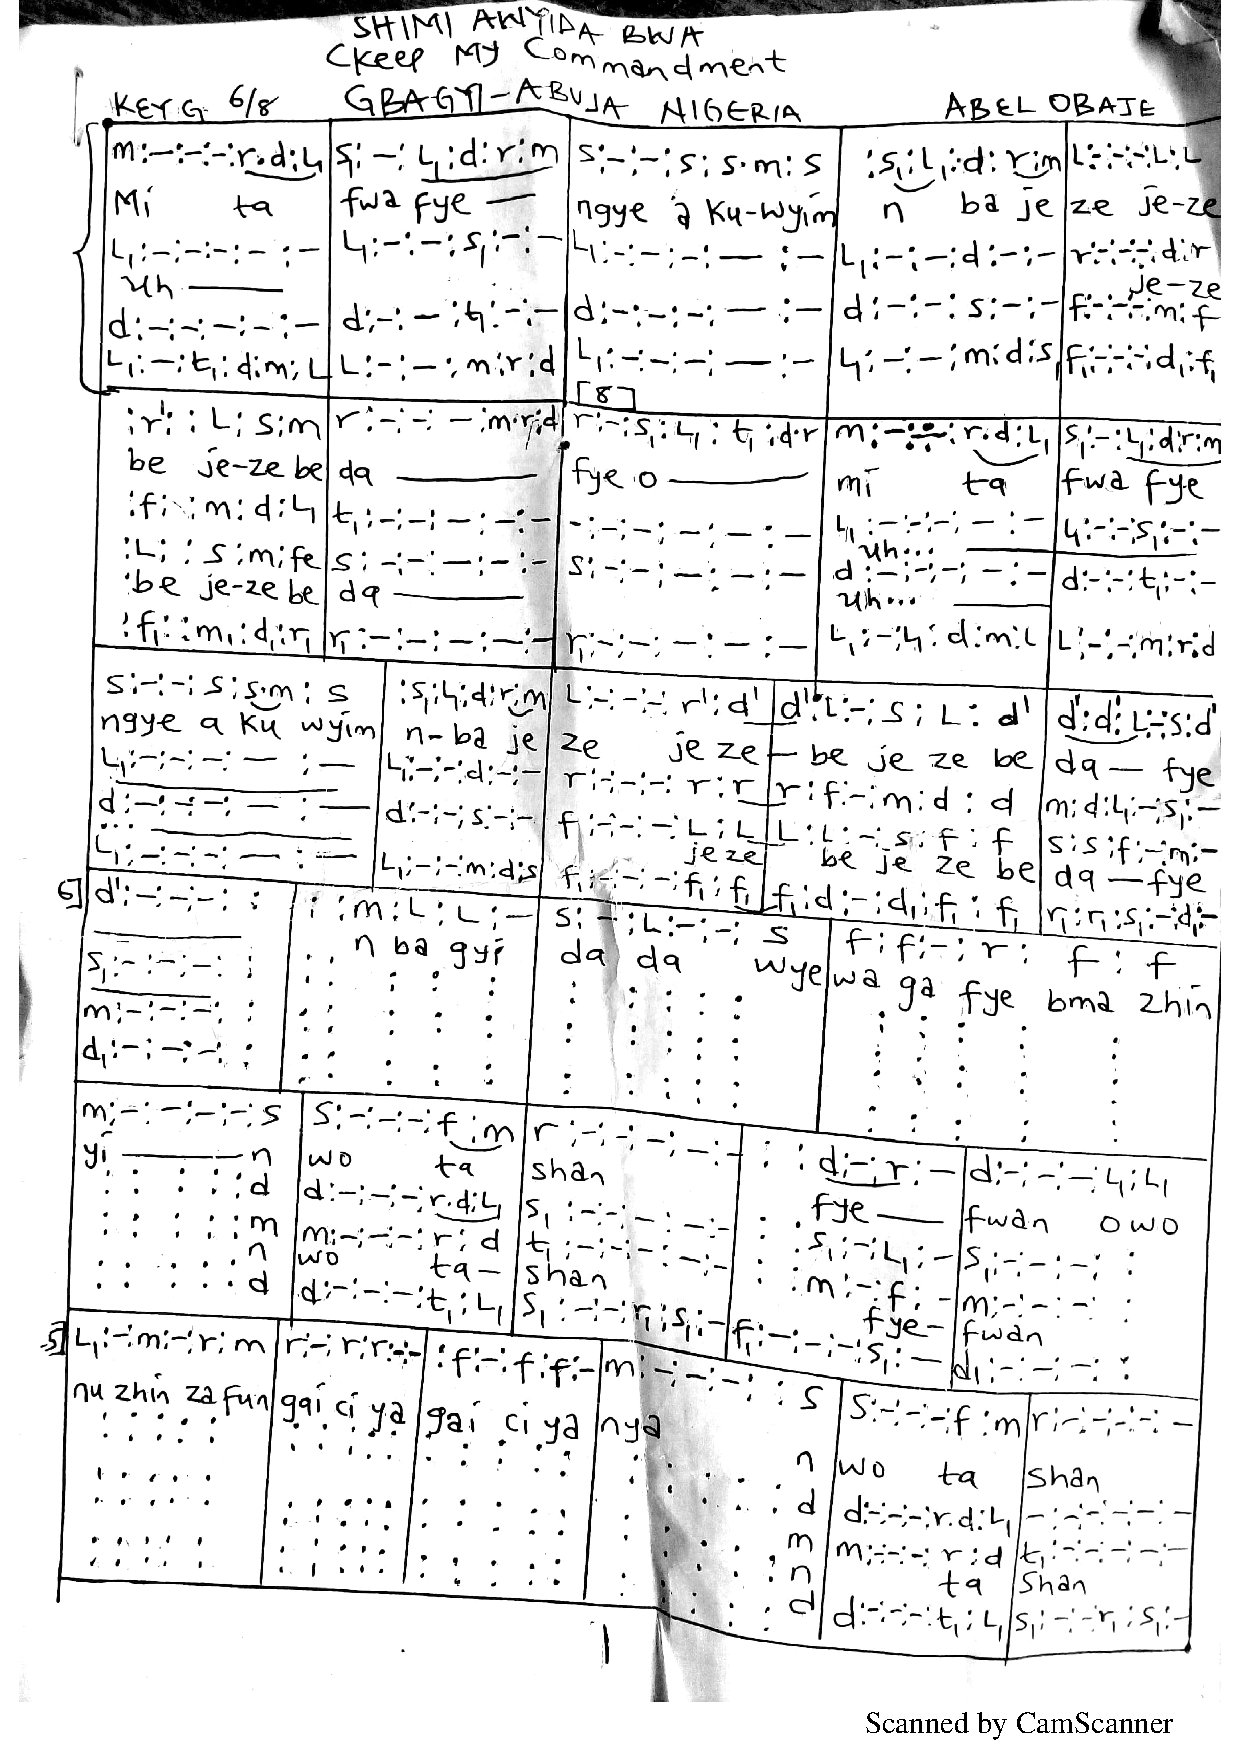 SHIMI AWYIDA BWA
(Keep My Commandment
KEY G 6/8 GBAGYI-ABUJA NIGERIA ABEL OBAJE
m:-:-:-:r.d:L₁ | s₁:-:L₁:d:r:m | s:-:-:s:s.m:s | :s₁:L₁:d:r:m | L:-:-:-:L:L
Mi ta | fwa fye — | ngye a Ku-wyim | n ba je | ze je-ze
L₁:-:-:-:-:- | L₁:-:-:s₁:-:- | L₁:-:-:-:-:- | L₁:-:-:d:-:- | r:-:-:-:d:r
Uh — | je-ze
d:-:-:-:-:- | d:-:-:t₁:-:- | d:-:-:-:-:- | d:-:-:s:-:- | f:-:-:-:m:f
L₁:-:t₁:d:m:L | L:-:-:m:r:d | L₁:-:-:-:-:- | L₁:-:-:m:d:s₁ | f₁:-:-:-:d₁:f₁
[8]
:r':L:s:m | r:-:-:-:m.r:d | r:-:s₁:L₁:t₁:d.r | m:-:-:-:r.d:L₁ | s₁:-:L₁:d:r:m
be je-ze be | da — | fye o — | mi ta | fwa fye
:f:m:d:L₁ | t₁:-:-:-:-:- | -:-:-:-:-:- | L₁:-:-:-:-:- | L₁:-:-:s₁:-:-
Uh... —
:L:s:m:fe | s:-:-:-:-:- | s:-:-:-:-:- | d:-:-:-:-:- | d:-:-:t₁:-:-
be je-ze be | da — | Uh... —
:f₁:m₁:d₁:r₁ | r₁:-:-:-:-:- | r₁:-:-:-:-:- | L₁:-:L₁:d:m:L | L:-:-:m:r:d
s:-:-:s:s.m:s | :s₁:L₁:d:r:m | L:-:-:-:r':d' | d':L:-:s:L:d' | d':d':L:-:s:d'
ngye a Ku wyim | n-ba je | ze je ze | — be je ze be | da — fye
L₁:-:-:-:-:- | L₁:-:-:d:-:- | r:-:-:-:r:r | r:f:-:m:d:d | m:d:L₁:-:s₁:-
d:-:-:-:-:- | d:-:-:s:-:- | f:-:-:-:L:L | L:L:-:s:f:f | s:s:f:-:m:-
je ze | be je ze be | da — fye
L₁:-:-:-:-:- | L₁:-:-:m:d:s | f₁:-:-:-:f₁:f₁ | f₁:d:-:d₁:f₁:f₁ | r₁:r₁:s₁:-:d₁:-
6] d':-:-:-: : | : :m:L:L:- | s:-:L:-:-:s | f:f:-:r:f:f
n ba gyi | da da wye | wa ga fye bma zhin
s₁:-:-:-: :
m:-:-:-: :
d₁:-:-:-: :
m:-:-:-:-:s | s:-:-:-:f:m | r:-:-:-:-:- | : :d:-:r:- | d:-:-:-:L₁:L₁
yi — n | wo ta | shan | fye — | fwan owo
d | d:-:-:-:r.d:L₁ | s₁:-:-:-:-:- | s₁:-:L₁:- | s₁:-:-:-: :
m | m:-:-:-:r:d | t₁:-:-:-:-:- | m:-:f:- | m:-:-:-: :
n | wo ta- | shan | fye- | fwan
d | d:-:-:-:t₁:L₁ | s₁:-:-:r₁:s₁:- | f₁:-:-:-:s₁:- | d₁:-:-:-: :
5] L₁:-:m:-:r:m | r:-:r:r:-:- | :f:-:f:f:- | m:-:-:-:-:s | s:-:-:-:f:m | r:-:-:-:-:-
nu zhin za fun | gai ci ya | gai ci ya | nya n | wo ta | shan
d | d:-:-:-:r.d:L₁ | -:-:-:-:-:-
m | m:-:-:-:r:d | t₁:-:-:-:-:-
n | ta | shan
d | d:-:-:-:t₁:L₁ | s₁:-:-:r₁:s₁:-
1
Scanned by CamScanner